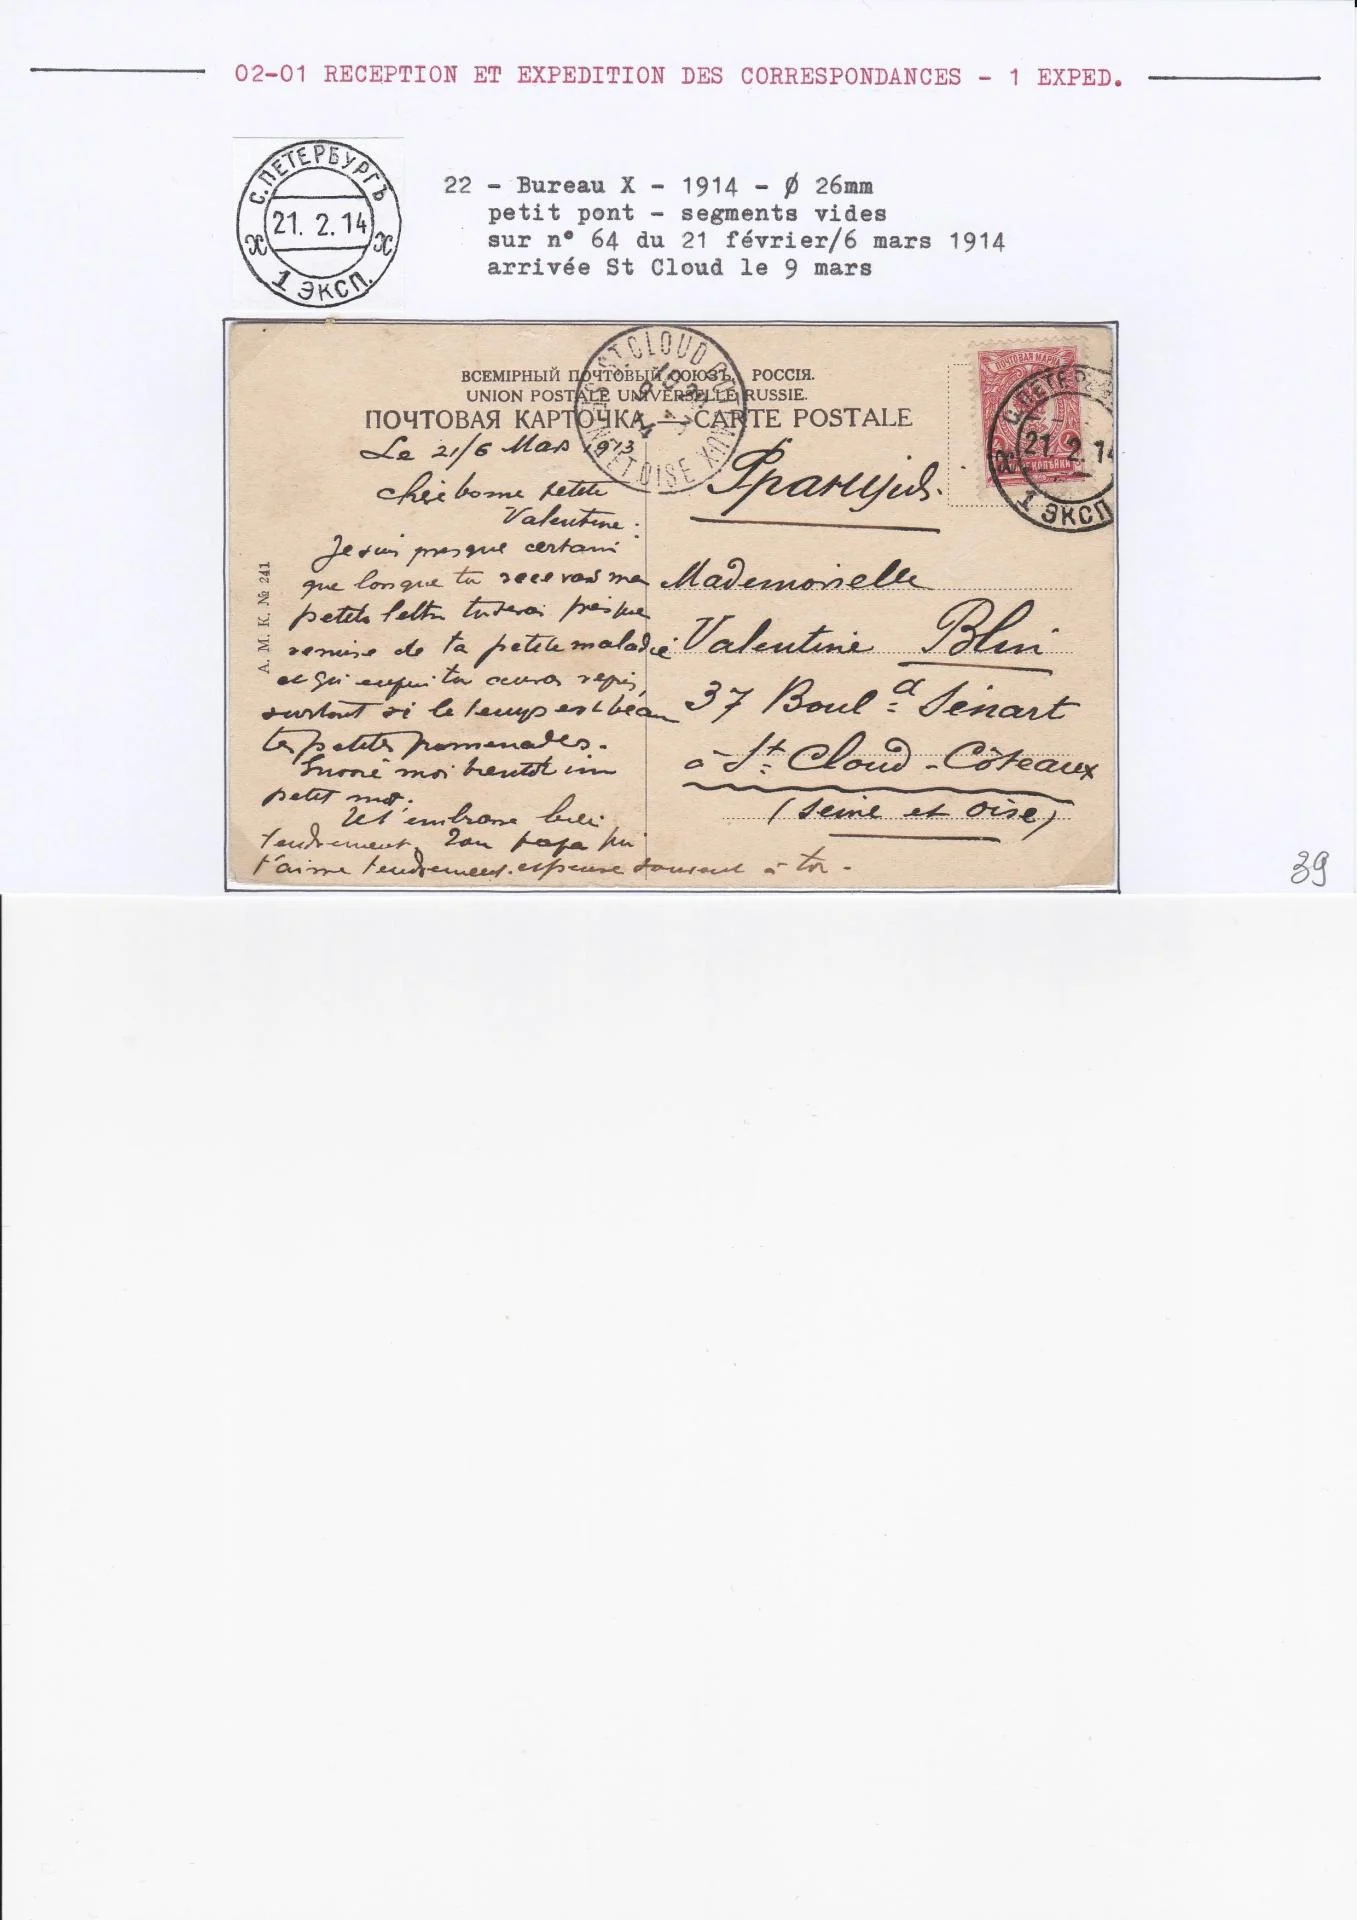 02-01 RECEPTION ET EXPEDITION DES CORRESPONDANCES - 1 EXPED.
С.ПЕТЕРБУРГЪ
21. 2. 14
Х Х
1 ЭКСП.
22 - Bureau X - 1914 - Ø 26mm
petit pont - segments vides
sur n° 64 du 21 février/6 mars 1914
arrivée St Cloud le 9 mars
ST. CLOUD COTEAUX
SEINE ET OISE
ВСЕМІРНЫЙ ПОЧТОВЫЙ СОЮЗЪ. РОССІЯ.
UNION POSTALE UNIVERSELLE RUSSIE.
ПОЧТОВАЯ КАРТОЧКА — CARTE POSTALE
ПОЧТОВАЯ МАРКА
С.ПЕТЕРБ
21. 2. 14
1 ЭКСП
Le 21/6 Mars 1913
Chère bonne petite
Valentine:
Je suis presque certain
que lorsque tu recevras ma
petite lettre tu seras presque
remise de ta petite maladie
et qu'enfin tu auras repris,
surtout si le temps est beau
tes petites promenades.
moi bientôt un
petit mot.
Et t'embrasse bien
tendrement. Ton papa qui
t'aime tendrement. et pense souvent à toi.
А. М. К. № 241
Франція.
Mademoiselle
Valentine Blin
37 Boul=d Sénart
à St= Cloud - Côteaux
(Seine et Oise)
39